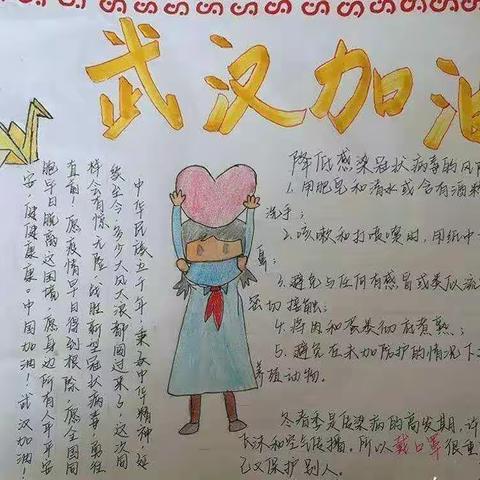 武汉加油
中华民族五千年,秉承中华精神延
续至今,多少大风大浪都闯过来了,这次同
样会有惊无险,战胜新型冠状病毒!勇往
直前!愿疫情早日得到根除,愿全国同
胞早日脱离这困境,愿身边所有人平平安
安、健健康康。中国加油!武汉加油!
降低感染冠状病毒的风
1.用肥皂和清水或含有酒
洗手;
2.咳嗽和打喷嚏时,用纸巾
鼻;
3.避免与任何有感冒或类似流
密切接触;
4.将肉和蛋类彻底煮熟;
5.避免在未加防护的情况下
养殖动物。
冬春季是传染病的高发期,许
飞沫和空气传播。所以戴口罩很重
己又保护别人。